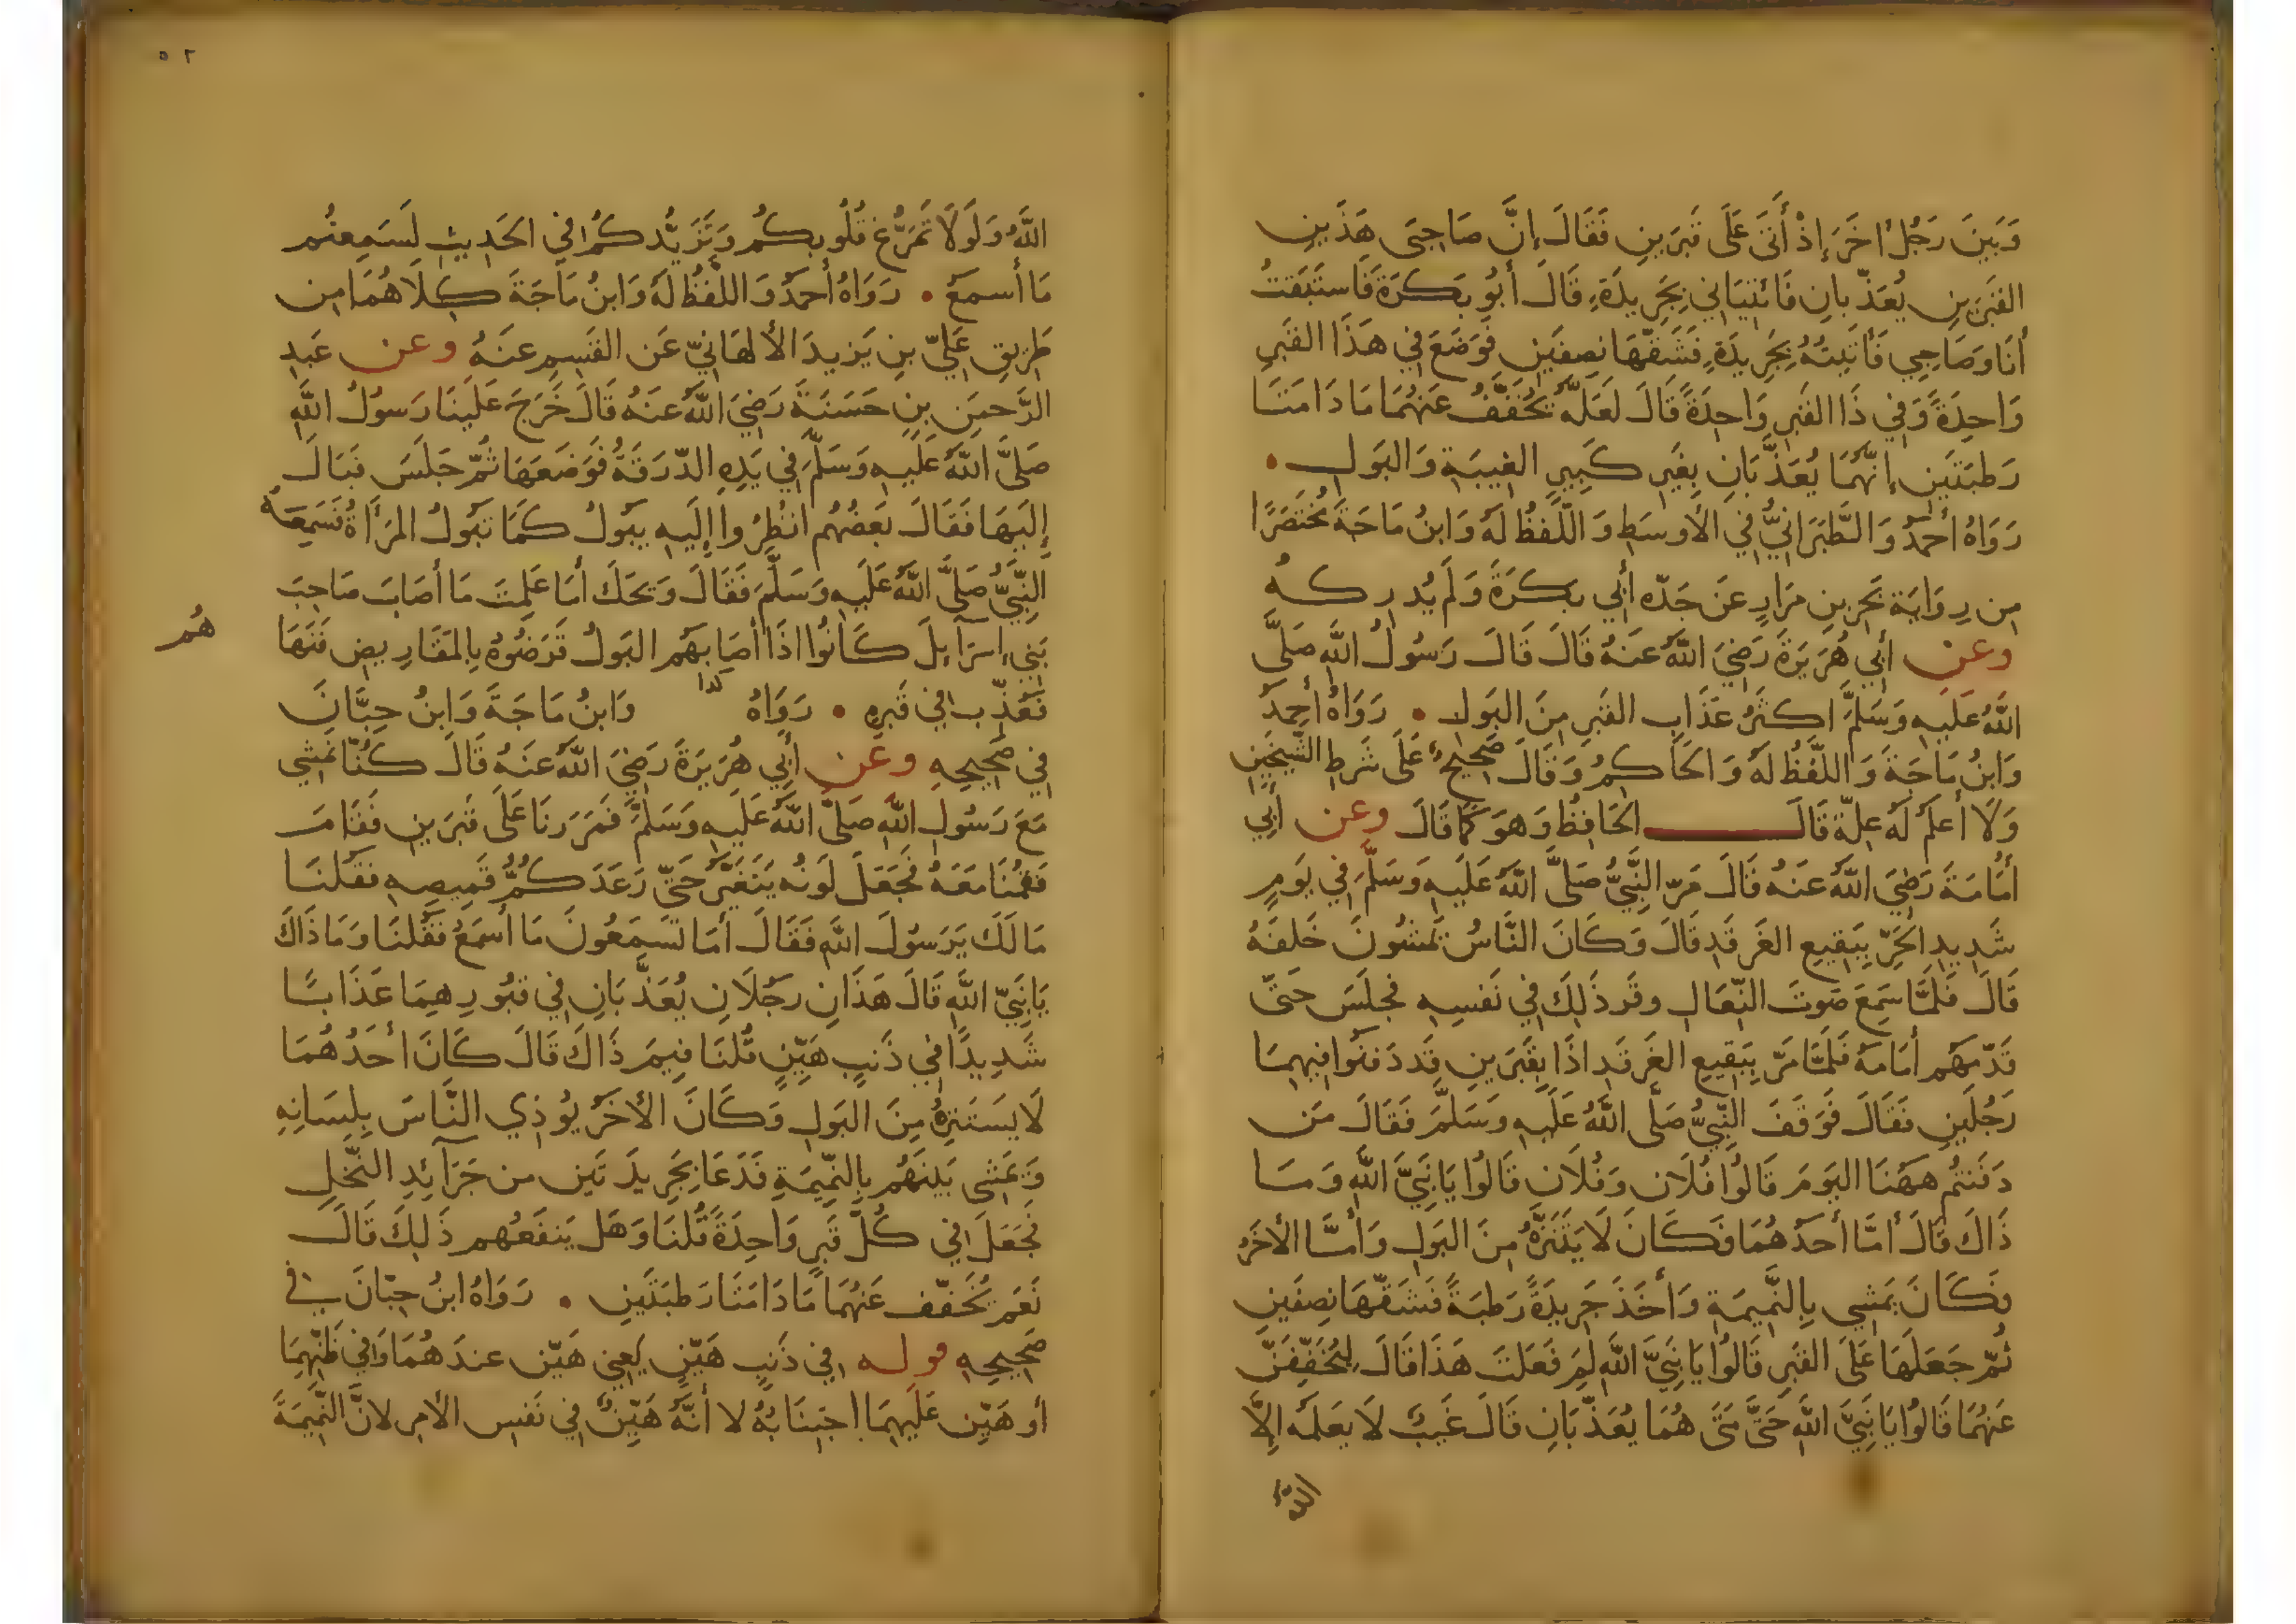 وَبَينَ رَجُلٌ اخَرَ إِذْ أَتَى عَلَى قَبرَينِ فَقَالَ إِنَّ صَاحِبَى هَذَينِ
القَبرَينِ يُعَذَّبانِ فَائتِيَانِي بِجَرِيدَةٍ قَالَ أَبُو بَكرَةَ فَاستَبَقتُ
أنَا وَصَاحِبِي فَأتَيتُهُ بِجَرِيدَةٍ فَشَقَّهَا نِصفَينِ فَوَضَعَ فِي هَذَا القَبرِ
وَاحِدَةً وَفِي ذَا القَبرِ وَاحِدَةً قَالَ لَعَلَّهُ يُخَفَّفُ عَنهُمَا مَا دَامَتَا
رَطبَتَينِ إنَّهُمَا يُعَذَّبَانِ بِغَيرِ كَبِيرٍ الغِيبَةِ وَالبَولِ •
رَوَاهُ أحمَدُ وَالطَّبَرَانِيُّ فِي الأَوسَطِ وَاللَّفظُ لَهُ وَابنُ مَاجَةَ مُختَصَرًا
مِن رِوَايَة بَحرِ بنِ مَرَارٍ عَن جَدّه أبِي بَكرَةَ وَلَم يُدرِكهُ
وعن أبِي هُرَيرَةَ رَضِيَ اللَّهُ عَنهُ قَالَ قَالَ رَسُولُ اللَّهِ صَلَّى
اللَّهُ عَلَيهِ وَسَلَّمَ اكثَرُ عَذَابِ القَبرِ مِنَ البَولِ • رَوَاهُ أحمَدُ
وَابنُ مَاجَةَ وَاللَّفظُ لَهُ وَالحَاكِمُ وَقَالَ صَحِيحٌ عَلَى شَرطِ الشَّيخَينِ
وَلَا أعلَمُ لَهُ عِلّة قَالَ الحَافِظُ وَهوَ كَمَا قَالَ وعن أبِي
أُمَامَةَ رَضِيَ اللَّهُ عَنهُ قَالَ مَرّ النَّبِيُّ صَلَّى اللَّهُ عَلَيهِ وَسَلَّمَ فِي يَومٍ
شَدِيدِ الحَرِّ بِبَقِيعِ الغَرقَدِ قَالَ وَكَانَ النَّاسُ يَمشُونَ خَلفَهُ
قَالَ فَلَمَّا سَمِعَ صَوتَ النِّعَالِ وقَر ذَلِكَ فِي نَفسِهِ فَجلَسَ حَتَّى
قَدّمَهُم أمَامَهُ فَلَمَّا مَرّ بِبَقِيعِ الغَرقَدِ اذَا بِقَبرَينِ قَد دَفَنُوا فِيهِمَا
رَجُلَينِ فَقَالَ فَوَقَفَ النَّبِيُّ صَلَّى اللَّهُ عَلَيهِ وَسَلَّمَ فَقَالَ مَن
دَفَنتُم هَهُنَا اليَومَ قَالُوا فُلَان وَفُلَان قَالُوا يَا نَبِيَّ اللَّهِ وَمَا
ذَاكَ قَالَ أمَّا أحَدُهُمَا فَكَانَ لَا يَتَنَزَّهُ مِنَ البَولِ وَأمَّا الأخَرُ
فَكَانَ يَمشِي بِالنَّمِيمَةِ وَأخَذَ جَرِيدَةً رَطبَةً فَشَقَّهَا نِصفَينِ
ثُمّ جَعَلَهَا عَلَى القَبرِ قَالُوا يَا نَبِيَّ اللَّهِ لِمَ فَعَلتَ هَذَا قَالَ لِيُخَفَّفَنَّ
عَنهُمَا قَالُوا يَا نَبِيَّ اللَّهِ حَتَّى مَتَى هُمَا يُعَذَّبَانِ قَالَ غَيبٌ لَا يَعلَمُه الَّا
اللَّهُ
٥٢
اللَّهُ وَلَولَا تَمَرُّغ قُلُوبِكُم وَتَزَيُّدكُم فِي الحَدِيثِ لَسَمِعتُم
مَا أسمَعُ • رَوَاهُ أحمَدُ وَاللَّفظُ لَهُ وَابنُ مَاجَةَ كِلَاهُمَا مِن
طَرِيقِ عَلِيّ بنِ يَزِيدَ الألهَانِيّ عَن القَسِمِ عَنهُ وعن عَبدِ
الرَّحمَنِ بنِ حَسَنَةَ رَضِيَ اللَّهُ عَنهُ قَالَ خَرَجَ عَلَينَا رَسُولُ اللَّهِ
صَلَّى اللَّهُ عَلَيهِ وَسَلَّمَ فِي يَدِهِ الدّرَقَةُ فَوَضَعَهَا ثُمّ جَلَسَ فَبَالَ
إِلَيهَا فَقَالَ بَعضُهُم انظُرُوا إِلَيهِ يَبُولُ كَمَا تَبُولُ المَرأَةُ فَسَمِعَهُ
النَّبِيُّ صَلَّى اللَّهُ عَلَيهِ وَسَلَّمَ فَقَالَ وَيحَكَ أمَا عَلِمتَ مَا أصَابَ صَاحِبَ
بَنِي إسرَآيِلَ كَانُوا اذَا أصَابهُم البَولُ قَرَضُوهُ بِالمَقَارِيضِ فَنَهَا
هُم
فَعُذِّب فِي قَبرِهِ • رَوَاهُ كذا وَابنُ مَاجَةَ وَابنُ حِبَّانَ
فِي صَحِيحِهِ وعن أبِي هُرَيرَةَ رَضِيَ اللَّهُ عَنهُ قَالَ كُنّا نَمشِي
مَعَ رَسُولِ اللَّهِ صَلَّى اللَّهُ عَلَيهِ وَسَلَّمَ فَمَرَرنَا عَلَى قَبرَينِ فَقَامَ
فَقُمنَا مَعَهُ فَجَعَلَ لَونُه يَتَغَيَّرُ حَتَّى رَعَدَ كُمُّ قَمِيصِهِ فَقُلنَا
مَالَكَ يَرَسُولَ اللَّهِ فَقَالَ أمَا تَسمَعُونَ مَا أسمَعُ فَقُلنَا وَمَا ذَاكَ
يَا نَبِيّ اللَّهِ قَالَ هَذَانِ رَجُلَانِ يُعَذَّبَانِ فِي قُبُورِهِمَا عَذَابًا
شَدِيدًا فِي ذَنبٍ هَيِّنٍ قُلنَا فِيمَ ذَاكَ قَالَ كَانَ أحَدُهُمَا
لَا يَستَنزِهُ مِنَ البَولِ وَكَانَ الأخَرُ يُوذِي النَّاسَ بِلِسَانِهِ
وَيَمشِى بَينَهُم بِالنَّمِيمَةِ فَدَعَا بِجَرِيدَتَينِ من جَرَآئِدِ النَّخلِ
فَجَعَلَ فِي كُلّ قَبرٍ وَاحِدَةً قُلنَا وَهَل يَنفَعُهُم ذَلِكَ قَالَ
نَعَم يُخَفّف عَنهُمَا مَا دَامَتَا رَطبَتَينِ • رَوَاهُ ابنُ حِبّانَ في
صَحِيحِهِ قوله فِي ذَنبٍ هَيِّنٍ يَعنِي هَيّن عندَهُمَا وَفِي ظَنِّهِمَا
أو هَيّن عَلَيهِمَا اجتِنَابُهُ لا أنَّهُ هَيِّنٌ فِي نَفسِ الأمرِ لانَّ النَّمِيمَةَ